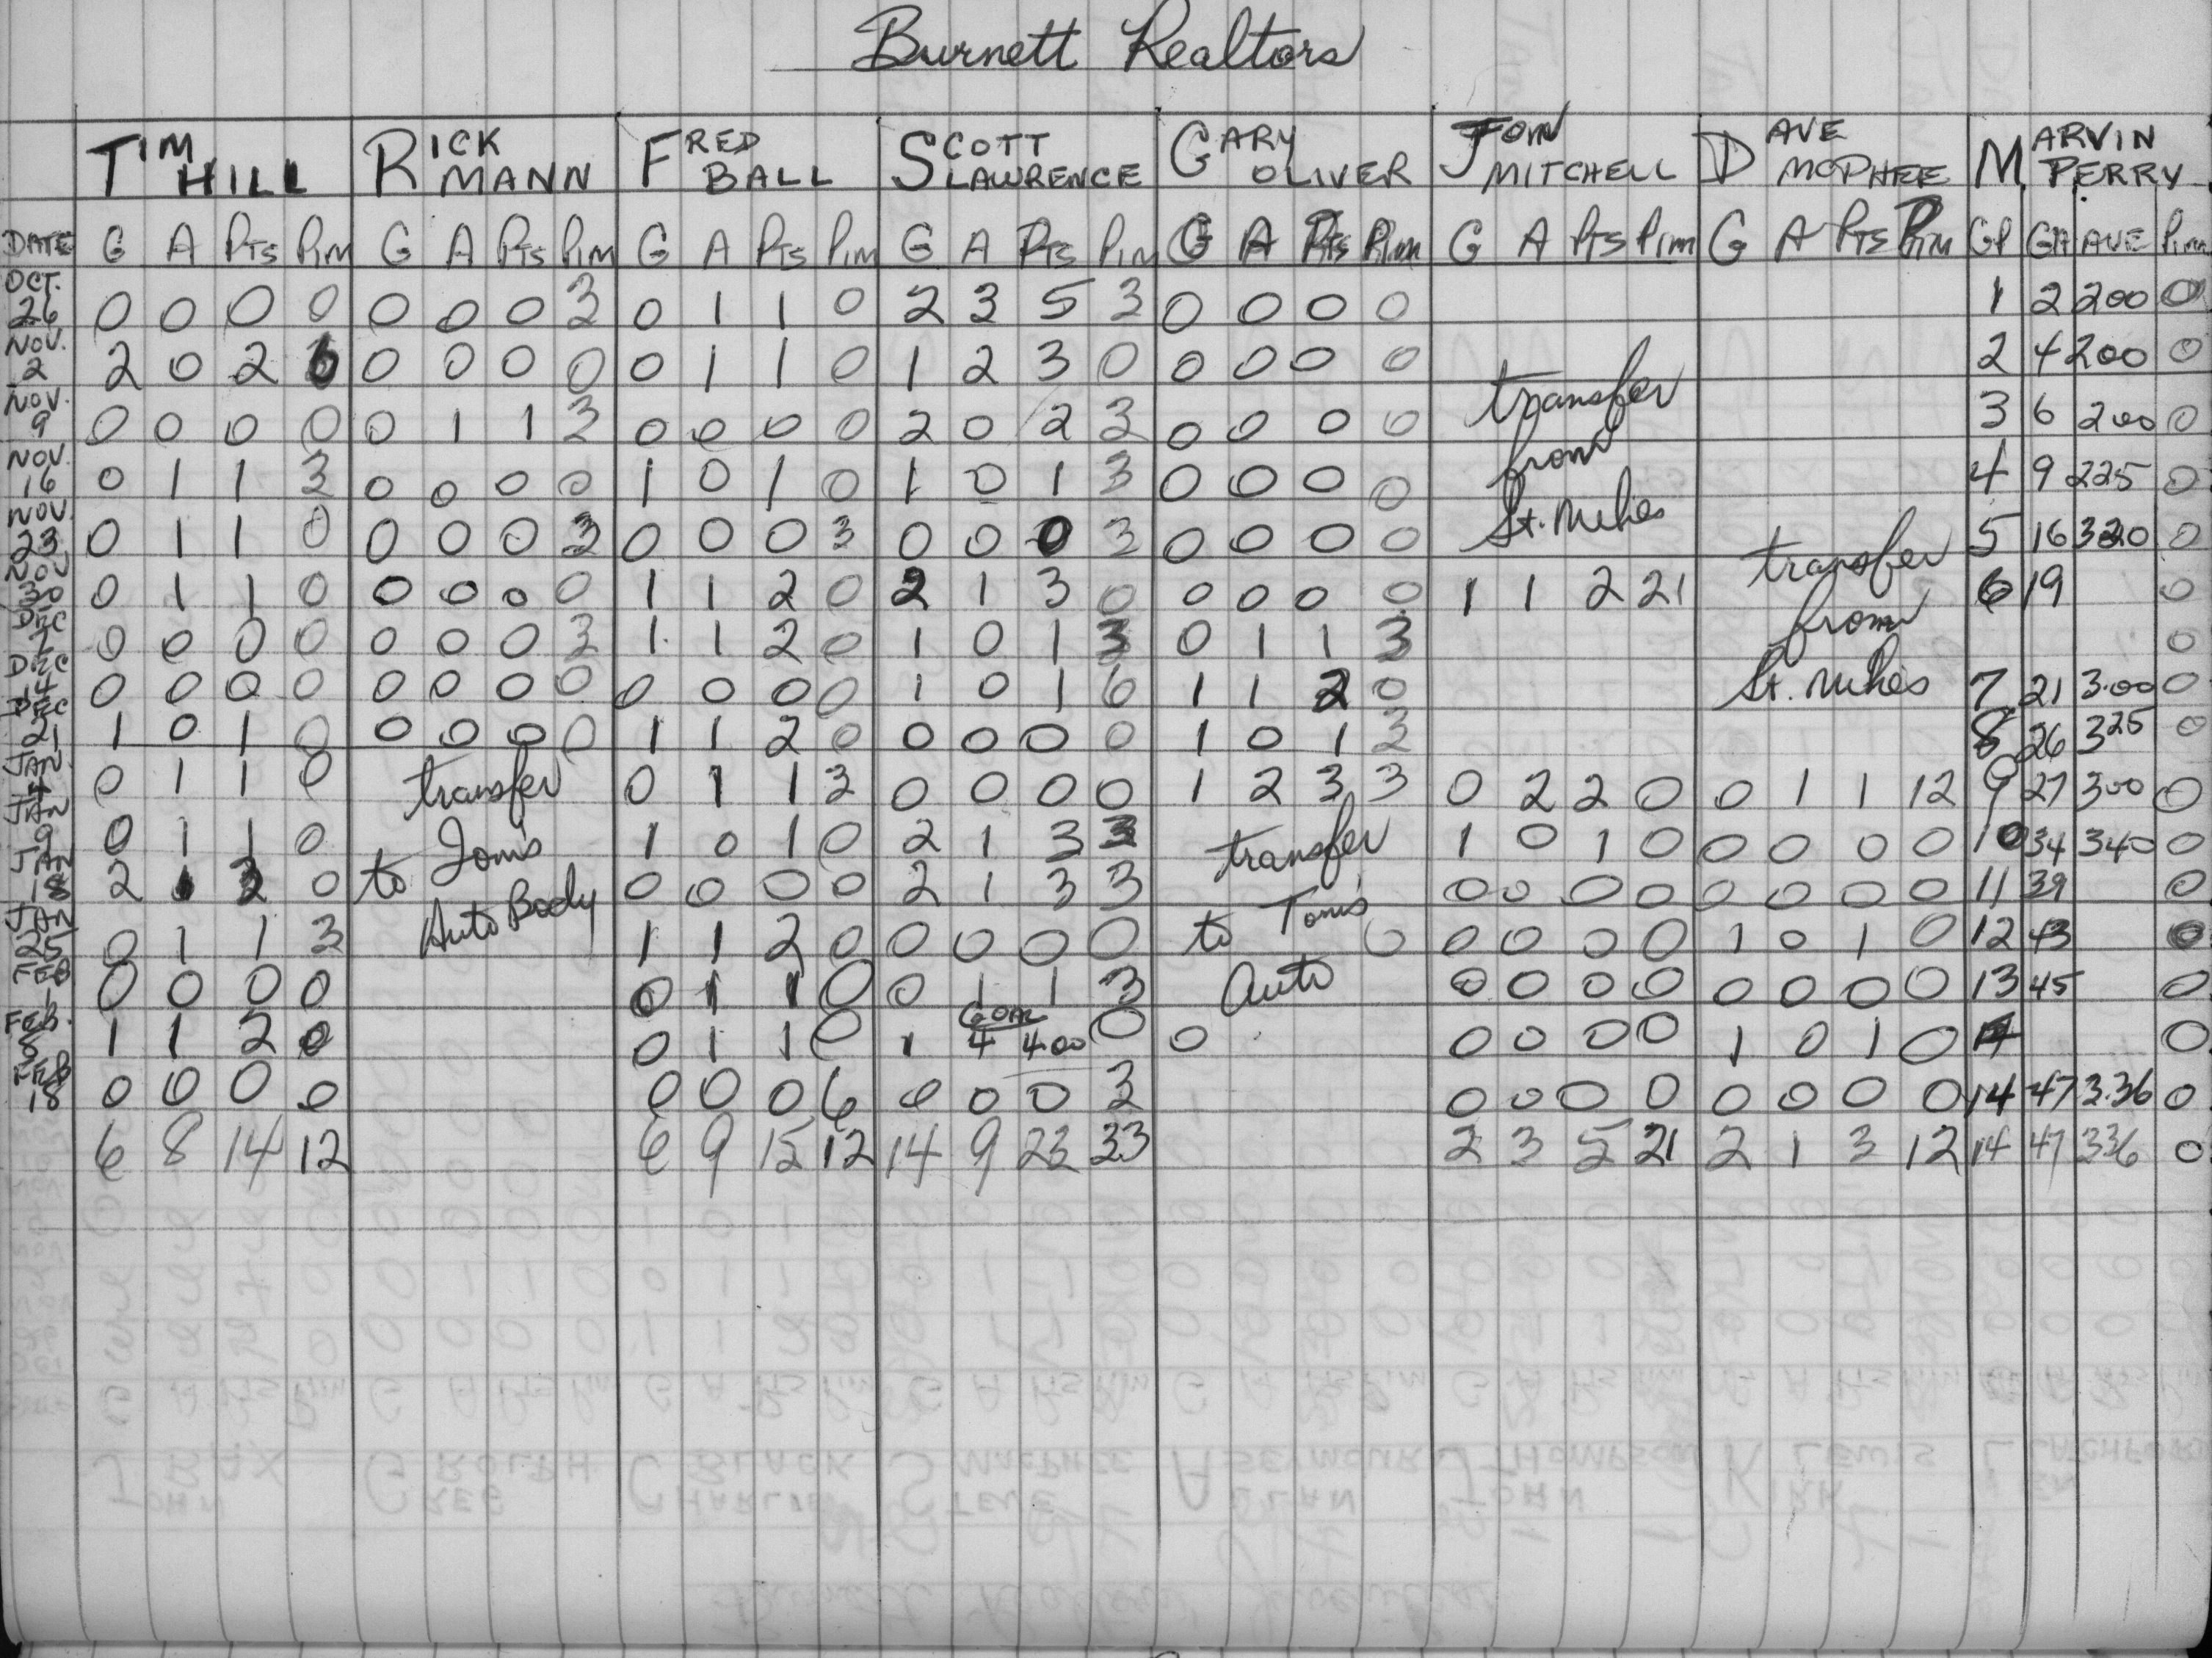 Burnett Realtors
TIM HILL RICK MANN FRED BALL SCOTT LAWRENCE GARY OLIVER JOHN MITCHELL DAVE MCPHEE MARVIN PERRY
DATE G A PTS PIM G A PTS PIM G A PTS PIM G A PTS PIM G A PTS PIM G A PTS PIM G A PTS PIM GP GA AVE PIM
OCT. 26 0 0 0 0 0 0 0 3 0 1 1 0 2 3 5 3 0 0 0 0 1 2 200 0
NOV. 2 2 0 2 6 0 0 0 0 0 1 1 0 1 2 3 0 0 0 0 0 2 4 200 0
NOV. 9 0 0 0 0 0 1 1 3 0 0 0 0 2 0 2 3 0 0 0 0 transfer 3 6 200 0
NOV. 16 0 1 1 3 0 0 0 0 1 0 1 0 1 0 1 3 0 0 0 0 from 4 9 225 0
NOV. 23 0 1 1 0 0 0 0 3 0 0 0 3 0 0 0 3 0 0 0 0 St. Mikes 5 16 320 0
NOV 30 0 1 1 0 0 0 0 0 1 1 2 0 2 1 3 0 0 0 0 0 1 1 2 21 transfer 6 19 0
DEC 7 0 0 0 0 0 0 0 3 1 1 2 0 1 0 1 3 0 1 1 3 from 0
DEC 14 0 0 0 0 0 0 0 0 0 0 0 0 1 0 1 6 1 1 2 0 St. Mikes 7 21 3.00 0
DEC 21 1 0 1 0 0 0 0 0 1 1 2 0 0 0 0 0 1 0 1 3 8 26 325 0
JAN. 4 0 1 1 0 transfer 0 1 1 3 0 0 0 0 1 2 3 3 0 2 2 0 0 1 1 12 9 27 300 0
JAN 9 0 1 1 0 to Tom's 1 0 1 0 2 1 3 3 transfer 1 0 1 0 0 0 0 0 10 34 340 0
JAN 18 2 1 3 0 Auto Body 0 0 0 0 2 1 3 3 to Tom's 0 0 0 0 0 0 0 0 11 39 0
JAN 25 0 1 1 3 1 1 2 0 0 0 0 0 0 0 0 0 0 1 0 1 0 12 43 0
FEB 1 0 0 0 0 0 1 1 0 0 1 1 3 Auto 0 0 0 0 0 0 0 0 13 45 0
GOAL
FEB. 8 1 1 2 0 0 1 1 0 1 4 4.00 0 0 0 0 0 0 1 0 1 0 14 0
FEB 18 0 0 0 0 0 0 0 6 0 0 0 3 0 0 0 0 0 0 0 0 14 47 3.36 0
6 8 14 12 6 9 15 12 14 9 23 33 2 3 5 21 2 1 3 12 14 47 336 0